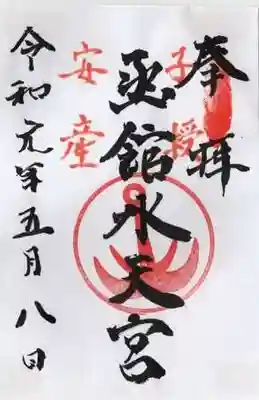 奉拝
子授
函館水天宮
安産
令和元年五月八日